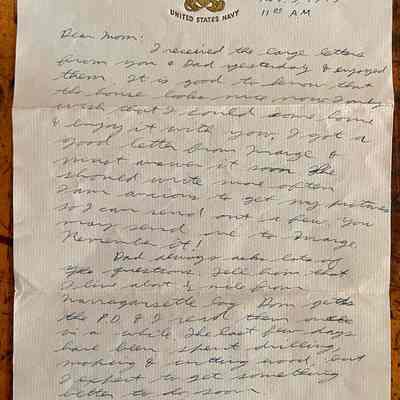 UNITED STATES NAVY
11 00 AM
Dear Mom:
I received the large letters
from you & Dad yesterday & enjoyed
them. It is good to know that
the house looks nice now. I only
wish that I could come home
& enjoy it with you. I got a
good letter from Marge &
must answer it soon. She
should write more often
I am anxious to get my pictures
so I can send out a few. You
may send one to Marge.
Remember it!
Dad always asks lots of
questions. Tell him that
I live about ½ mile from
Narragansette Bay. Don gets
the P.D. & I read them once
in a while. The last few days
have been spent drilling,
mopping & cutting wood, but
I expect to get something
better to do soon.